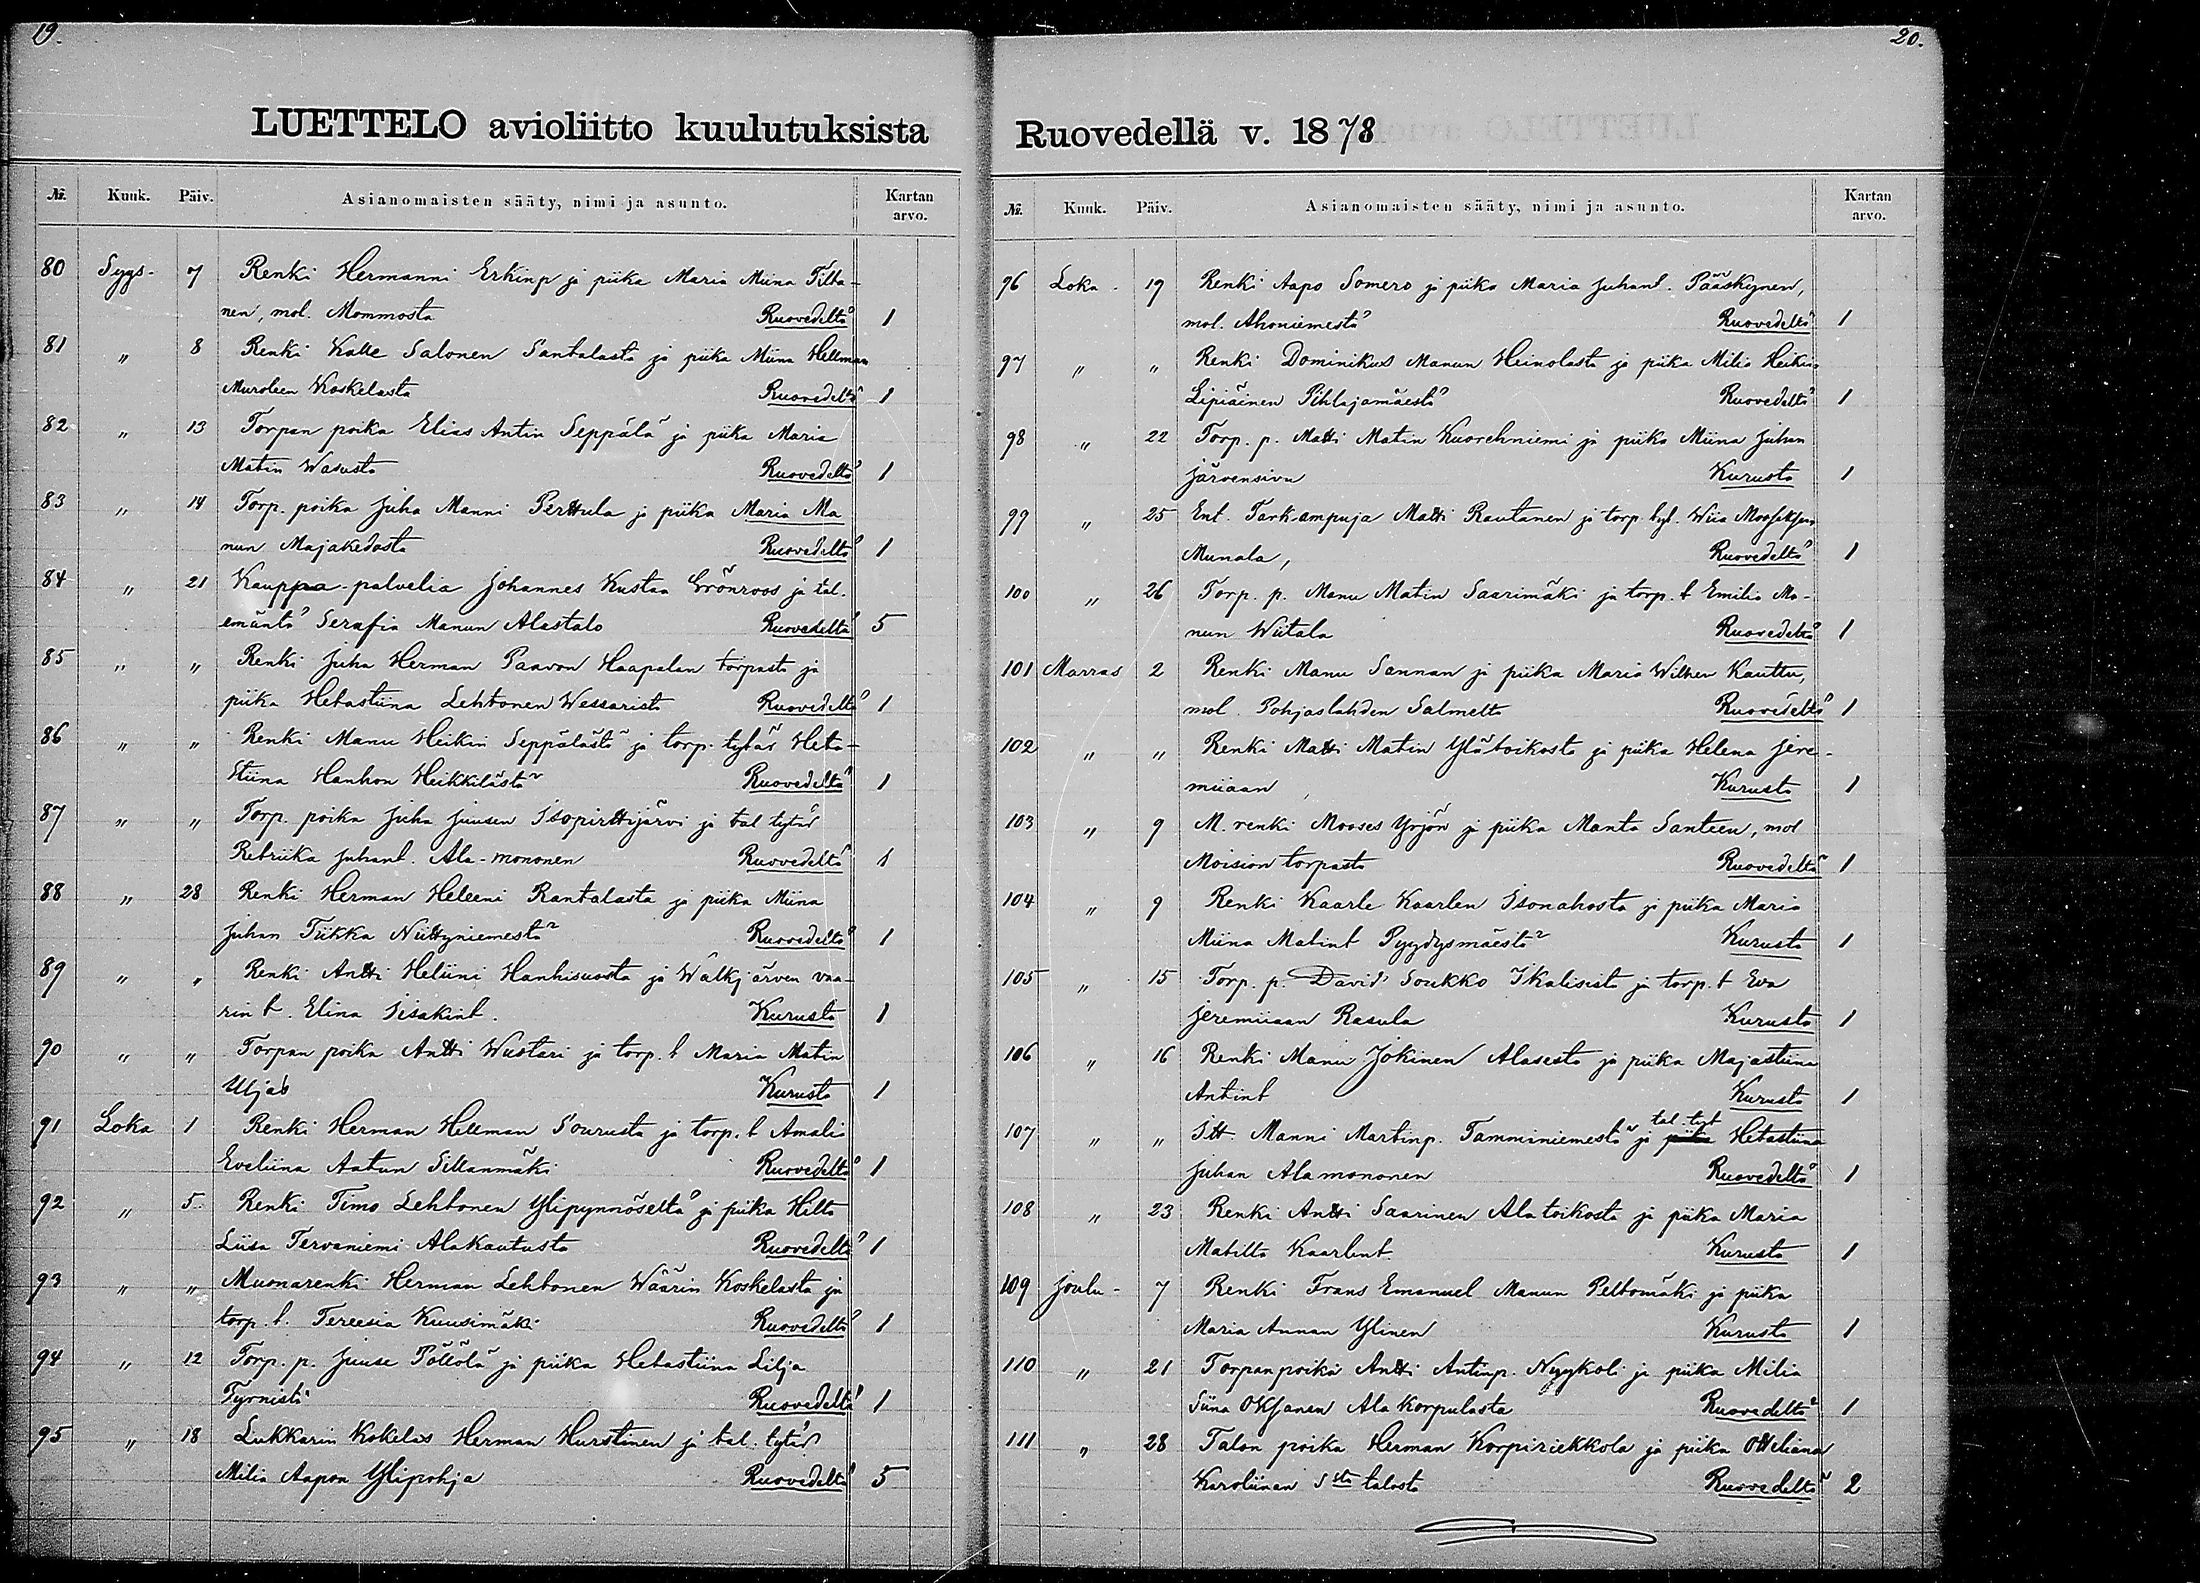 19.
LUETTELO avioliitto kuulutuksista
№. Kuuk. Päiv. Asianomaisten sääty, nimi ja asunto. Kartan arvo.
80 Syys- 7 Renki Hermanni Erkinp ja piika Maria Miina Tilta-
nen, mol. Mommosta Ruovedeltä 1
81 " 8 Renki Kalle Salonen Santalasta ja piika Miina Hellman
Muroleen Koskelasta Ruovedeltä 1
82 " 13 Torpan poika Elias Antin Seppälä ja piika Maria
Matin Wasusta Ruovedeltä 1
83 " 14 Torp. poika Juha Manni Perttula ja piika Maria Ma
nun Majakedosta Ruovedeltä 1
84 " 21 Kauppa-palvelia Johannes Kustaa Grönroos ja tal.
emäntä Serafia Manun Alastalo Ruovedeltä 5
85 " " Renki Juha Herman Paavon Haapalan torpasta ja
piika Hetastiina Lehtonen Wessarista Ruovedeltä 1
86 " " Renki Manu Heikin Seppälästä ja torp. tytär Heta-
stiina Hanhon Heikkilästä Ruovedeltä 1
87 " " Torp. poika Juha Juusen Isopirttijärvi ja tal tytär
Retriika Juhant. Ala-mononen Ruovedeltä 1
88 " 28 Renki Herman Heleeni Rantalasta ja piika Miina
Juhan Tiikka Niittyniemestä Ruovedeltä 1
89 " " Renki Antti Heliini Hanhisuosta ja Wälkjärven vaa-
rin t. Elina Iisakint. Kurusta 1
90 " " Torpan poika Antti Wustari ja torp. t Maria Matin
Ujas Kurusta 1
91 Loka 1 Renki Herman Hellman Sourusta ja torp. t Amalia
Eveliina Aatun Sillanmäki Ruovedeltä 1
92 " 5 Renki Timo Lehtonen Ylipynnöseltä ja piika Hilta
Liisa Tervaniemi Alakautusta Ruovedeltä 1
93 " " Muonarenki Herman Lehtonen Wäärin Koskelasta ja
torp. t. Tereesia Kuusimäki Ruovedeltä 1
94 " 12 Torp. p. Juuse Pöllölä ja piika Hetastiina Lilja
Tyrnistä Ruovedeltä 1
95 " 18 Lukkarin kokelas Herman Hurstinen ja tal. tytär
Milia Aapon Ylipohja Ruovedeltä 5
20.
Ruovedellä v. 1878
№. Kuuk. Päiv. Asianomaisten sääty, nimi ja asunto. Kartan arvo.
96 Loka- 19 Renki Aapo Somero ja piika Maria Juhant. Pääskynen,
mol. Ahoniemestä Ruovedeltä 1
97 " " Renki Dominikus Manun Heinolasta ja piika Milia Heikin
Lipiäinen Pihlajamäestä Ruovedeltä 1
98 " 22 Torp. p. Matti Matin Kuorehniemi ja piika Miina Juhan
Järvensivu Kurusta 1
99 " 25 Ent. Tark-ampuja Matti Rautanen ja torp. tyt. Wiia
Munala, Ruovedeltä 1
100 " 26 Torp. p. Manu Matin Saarimäki ja torp. t Emilia Ma-
nun Wiitala Ruovedeltä 1
101 Marras 2 Renki Manu Sannan ja piika Maria Kauttu,
mol. Pohjaslahden Salmelta Ruovedeltä 1
102 " " Renki Matti Matin Ylätoikosta ja piika Helena Jere-
miiaan, Kurusta 1
103 " 9 M. renki Mooses Yrjön ja piika Manta Santeen, mol
Moision torpasta Ruovedeltä 1
104 " 9 Renki Kaarle Kaarlen Isonahosta ja piika Maria
Miina Matint Pyydysmäestä Kurusta 1
105 " 15 Torp. p. David Soukko Ikalisista ja torp. t Eva
Jeremiiaan Rasula Kurusta 1
106 " 16 Renki Manu Jokinen Alasesta ja piika Majastiina
Antint Kurusta 1
107 " " Itt. Manni Martinp. Tamminiemestä ja piika tal. tyt Hetastiina
Juhan Alamononen Ruovedeltä 1
108 " 23 Renki Antti Saarinen Alatoikosta ja piika Maria
Matilta Kaarlent. Kurusta 1
109 Joulu- 7 Renki Frans Emanuel Manun Peltomäki ja piika
Maria Annan Ylinen Kurusta 1
110 " 21 Torpanpoika Antti Antinp. Nyykoli ja piika Milia
Siina Oksanen Alakorpulasta Ruovedeltä 1
111 " 28 Talon poika Herman Korpiriekkola ja piika Ottiliana
Karoliinan S sta talosta Ruovedeltä 2